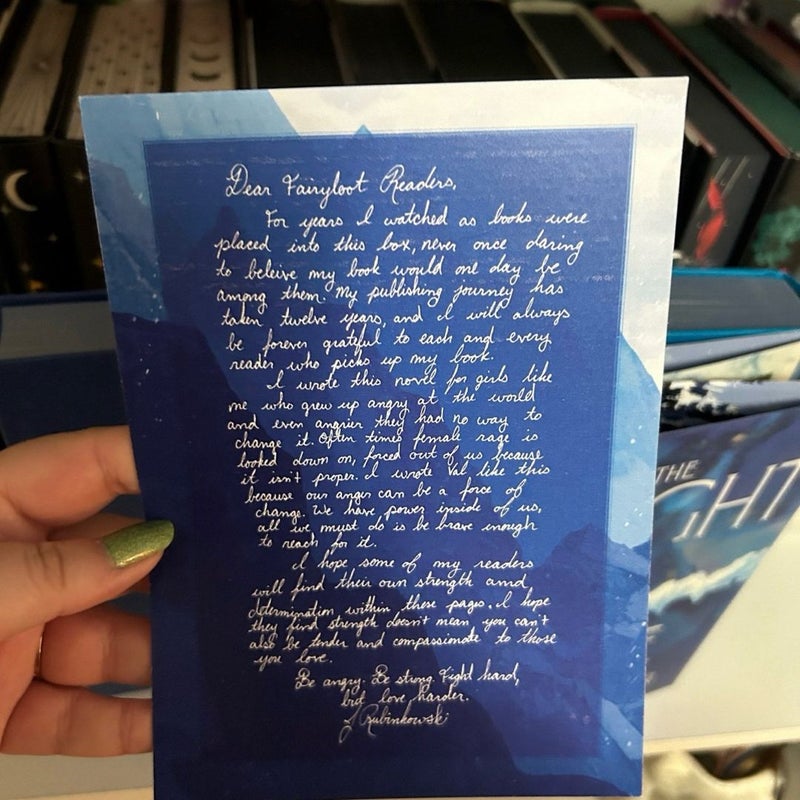 Dear Fairyloot Readers,
For years I watched as books were
placed into this box, never once daring
to beleive my book would one day be
among them. My publishing journey has
taken twelve years, and I will always
be forever grateful to each and every
reader who picks up my book.
I wrote this novel for girls like
me who grew up angry at the world
and even angrier they had no way to
change it. Often times female rage is
looked down on, forced out of us because
it isn't proper. I wrote Val like this
because our anger can be a force of
change. We have power inside of us,
all we must do is be brave enough
to reach for it.
I hope some of my readers
will find their own strength and
determination within these pages. I hope
they find strength doesn't mean you can't
also be tender and compassionate to those
you love.
Be angry. Be strong. Fight hard,
but love harder.
J Rubinkowski
THE
GHT